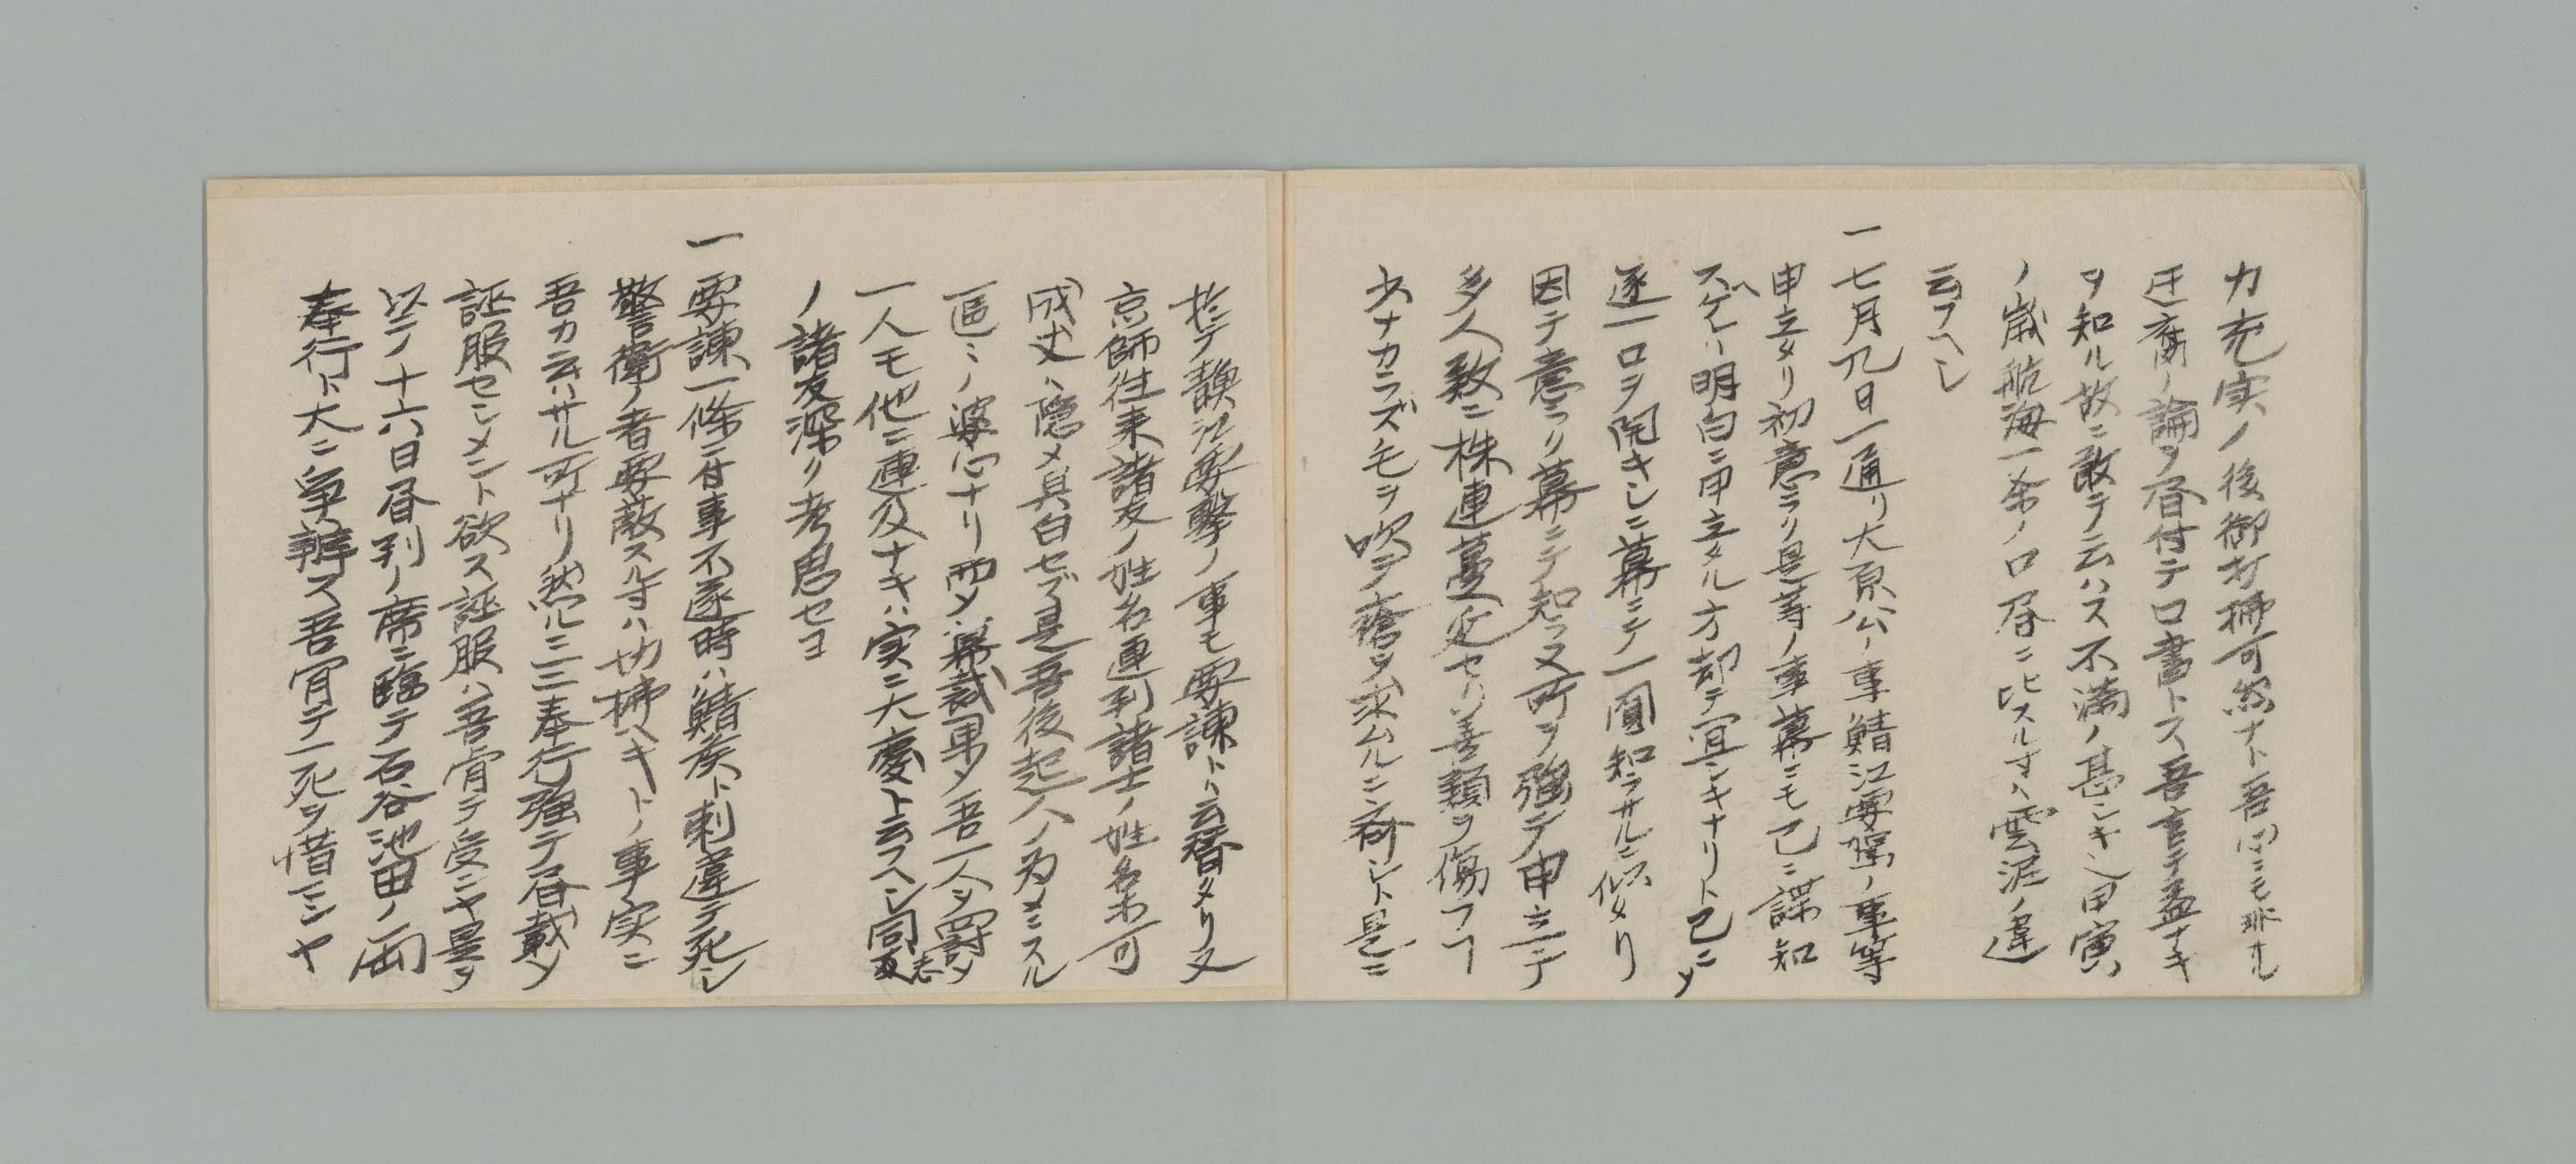 力充実ノ後御打拂可然ナト吾心ニモ非サル
迂腐ノ論ヲ書付テ口書トス吾言テ益ナキ
ヲ知ル故ニ敢テ云ハス不満ノ甚シキ也甲寅
ノ歳航海一条ノ口書ニ比スル寸ハ雲泥ノ違
云フヘシ
一七月九日一通リ大原公ノ事鯖江要駕ノ事等
申立タリ初意ラク是等ノ事幕ニモ已ニ諜知
スヘケレハ明白ニ申立タル方却テ宜シキナリト已ニ〆
逐一口ヲ開キシニ幕ニテ一圓知ラサルニ似タリ
因テ意ラク幕ニテ知ラヌ所ヲ強テ申立テ
多人数ニ株連蔓延セハ善類ヲ傷フヿ
少ナカラズ毛ヲ吹テ瘡ヲ求ムルニ齊シト是ニ
於テ鯖江要撃ノ事モ要諫トハ云替タリ又
京師往来諸友ノ姓名連判諸士ノ姓名等可
成丈ハ隠〆具白セズ是吾後起人ノ為メニスル
區々ノ婆心ナリ而〆幕裁果〆吾一人ヲ罸〆
一人モ他ニ連及ナキハ実ニ大慶ト云フヘシ同志
ノ諸友深ク考思セヨ
一要諫一條ニ付事不遂時ハ鯖矦ト刺違テ死シ
警衛ノ者要蔽スル寸ハ切拂ヘキトノ事実ニ
吾カ云ハサル所ナリ然ルニ三奉行強テ書載〆
誣服セシメント欲ス誣服ハ吾肯テ受ンヤ是ヲ
以テ十六日書判ノ席ニ臨テ石谷池田ノ両
奉行ト大ニ争辨ス吾肯テ一死ヲ惜マンヤ